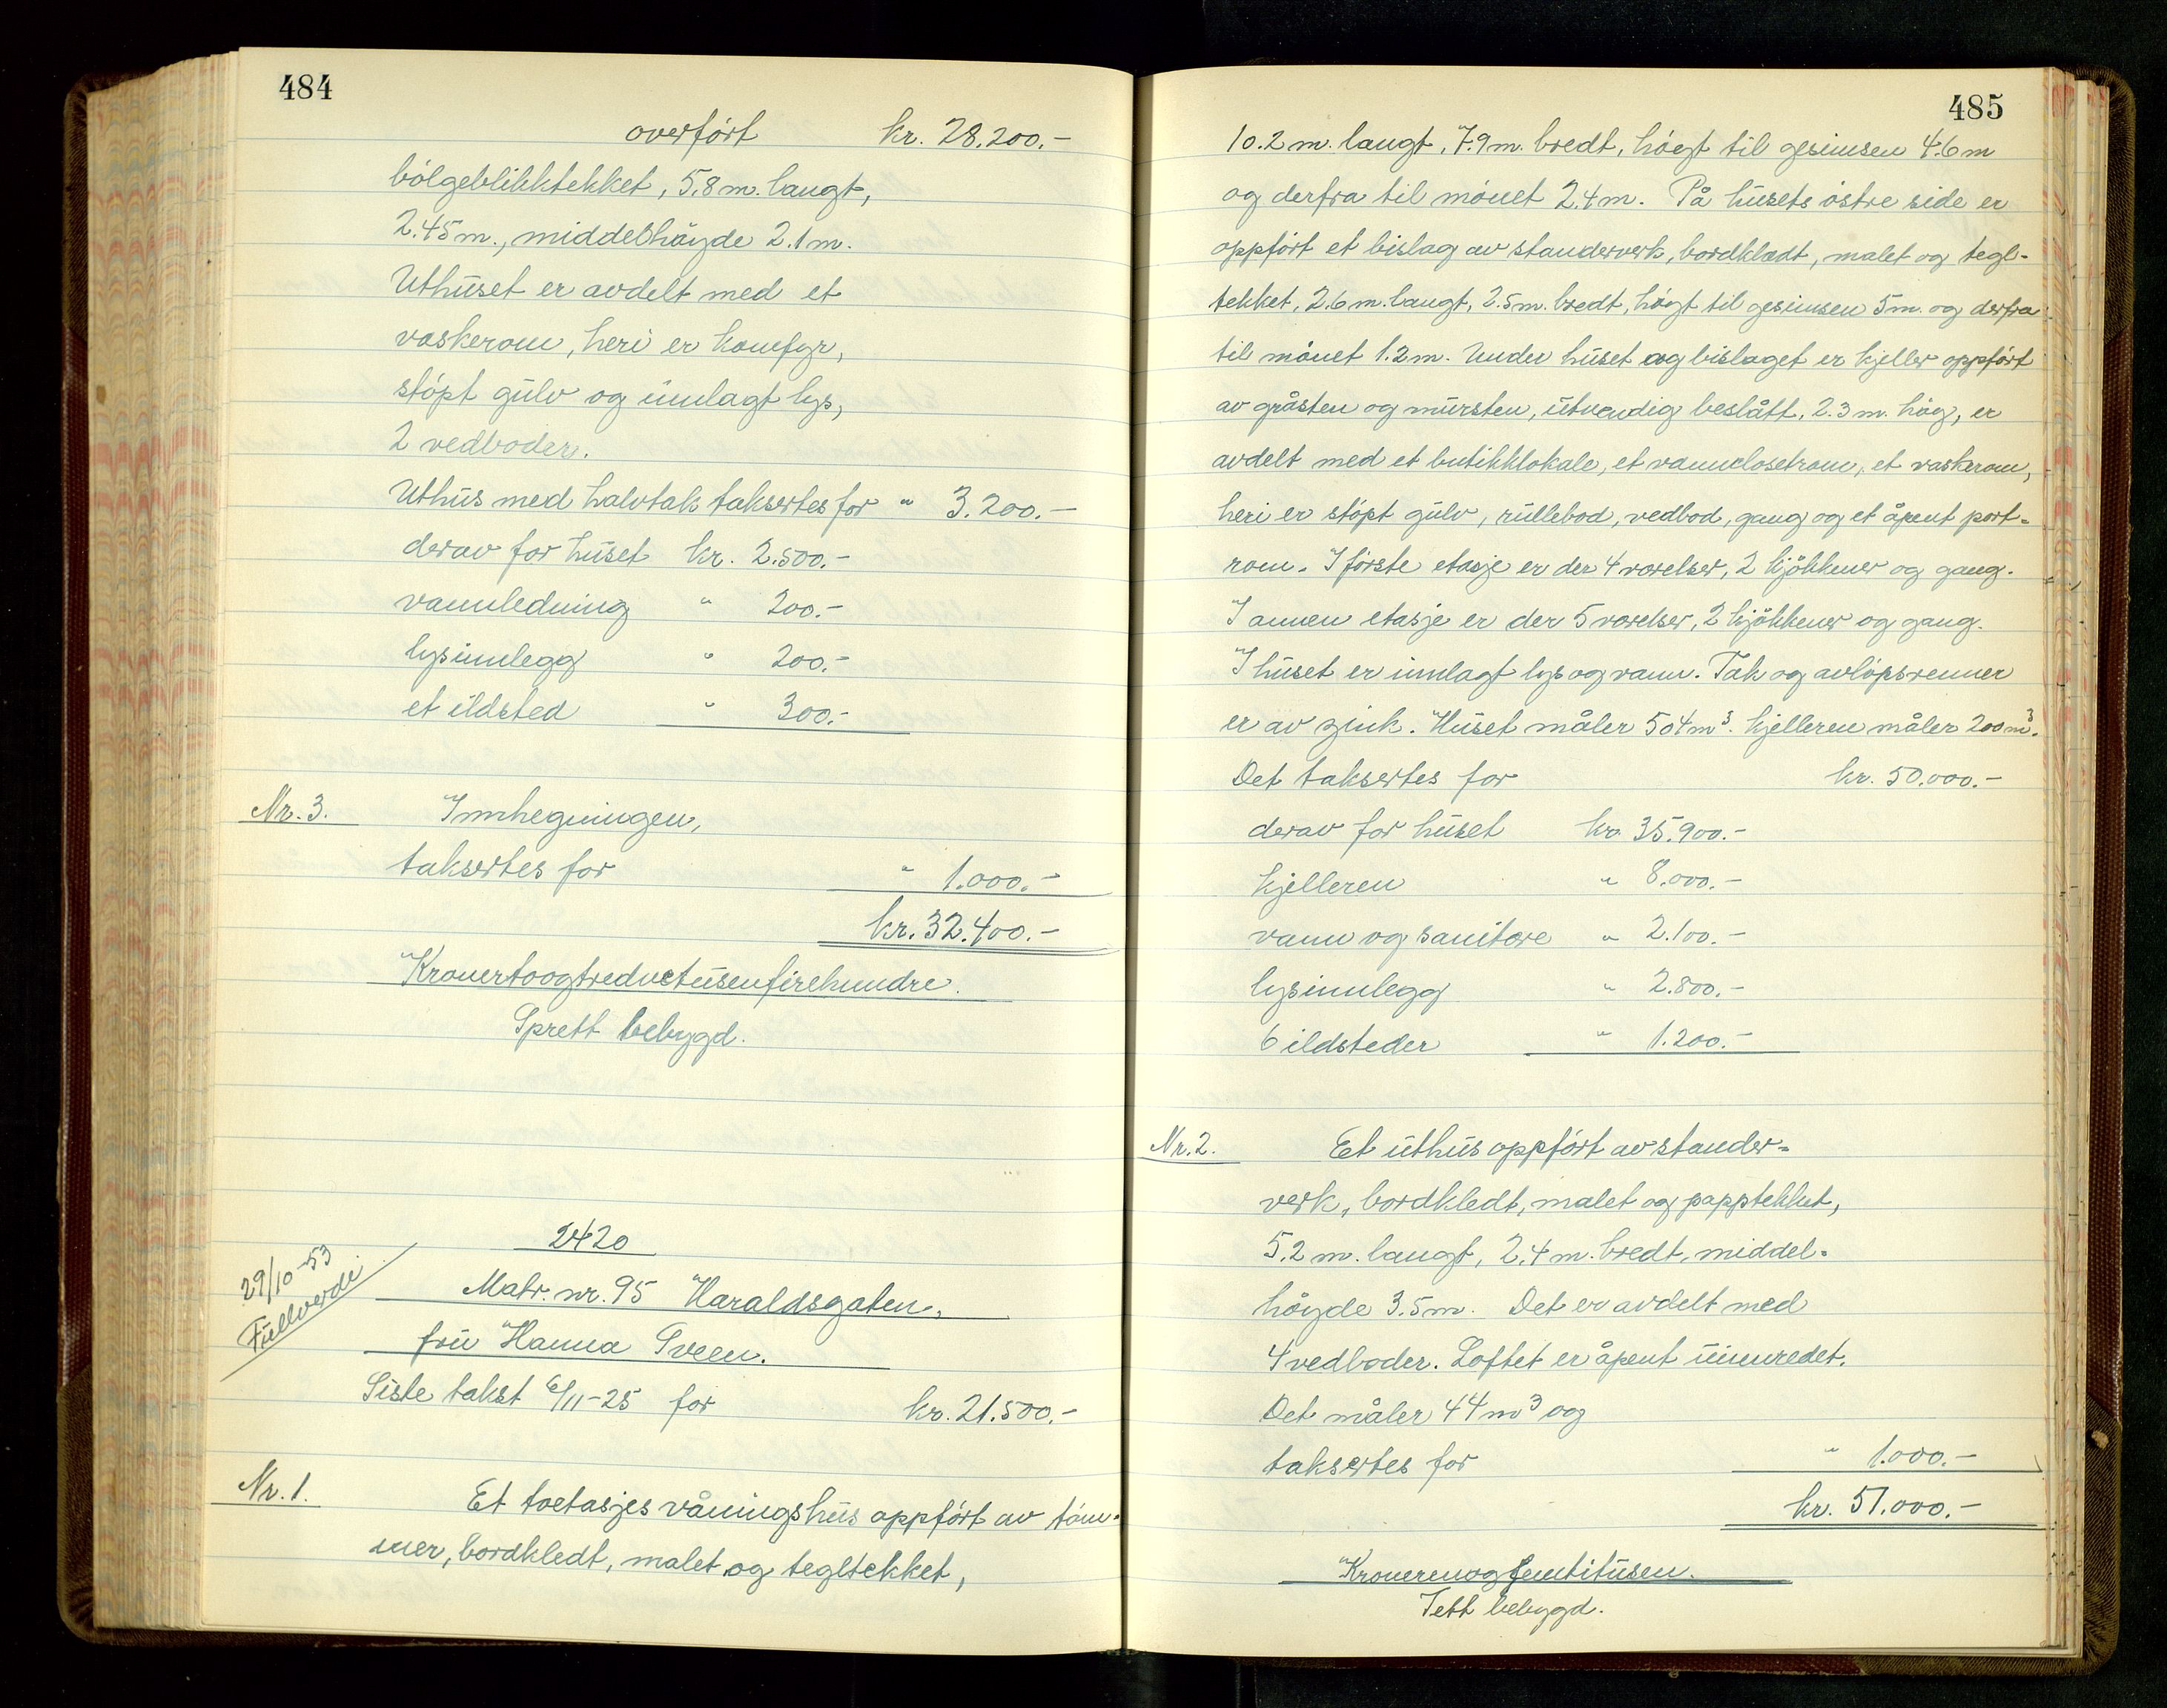 484
overført kr. 28.200.-
bølgeblikktekket, 5.8 m. langt,
2.45 m., middelhøyde 2.1 m.
Uthuset er avdelt med et
vaskerom, heri er komfyr,
støpt gulv og innlagt lys,
2 vedboder.
Uthus med halvtak taksertes for " 3.200.-
derav for huset kr. 2.500.-
vannledning " 200.-
lysinnlegg " 200.-
et ildsted " 300.-
Nr. 3. Innhegningen,
taksertes for " 1.000.-
kr. 32.400.-
Kronertoogtredvetusenfirehundre.
Sprett bebygd.
2420
29/10-53
Fullverdi
Matr. nr. 95 Haraldsgaten,
fru Hanna Sveen.
Siste takst 6/11-25 for kr. 21.500.-
Nr. 1. Et toetasjes våningshus oppført av tøm-
mer, bordkledt, malet og tegltekket,
485
10.2 m. langt, 7.9 m. bredt, høgt til gesimsen 4.6 m
og derfra til mønet 2.4 m. På husets østre side er
oppført et bislag av standerverk, bordkledt, malet og tegl-
tekket, 2.6 m. langt, 2.5 m. bredt, høgt til gesimsen 5 m. og derfra
til mønet 1.2 m. Under huset og bislaget er kjeller oppført
av gråsten og mursten, utvendig beslått, 2.3 m. høg, er
avdelt med et butikklokale, et vannclosetrom, et vaskerom,
heri er støpt gulv, rullebod, vedbod, gang og et åpent port-
rom. I første etasje er der 4 værelser, 2 kjøkkener og gang.
I annen etasje er der 5 værelser, 2 kjøkkener og gang.
I huset er innlagt lys og vann. Tak og avløpsrenner
er av zink. Huset måler 504 m³. kjelleren måler 200 m³.
Det taksertes for kr. 50.000.-
derav for huset kr. 35.900.-
kjelleren " 8.000.-
vann og sanitære " 2.100.-
lysinnlegg " 2.800.-
6 ildsteder " 1.200.-
Nr. 2. Et uthus oppført av stander-
verk, bordkledt, malet og papptekket,
5.2 m. langt, 2.4 m. bredt, middel-
høyde 3.5 m. Det er avdelt med
4 vedboder. Loftet er åpent uinnredet.
Det måler 44 m³ og
taksertes for " 1.000.-
kr. 51.000.-
Kronerenogfemtitusen.
Tett bebygd.